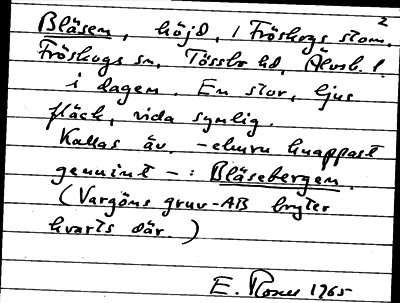 2
Bläsen, höjd, i Fröskogs stom,
Fröskogs sn, Tössbo hd, Älvsb. l.
i dagen. En stor, ljus
fläck, vida synlig.
Kallas äv. - ehuru knappast
genuint - : Bläsebergen.
(Vargöns gruv-AB bryter
kvarts där.)
E. 1965